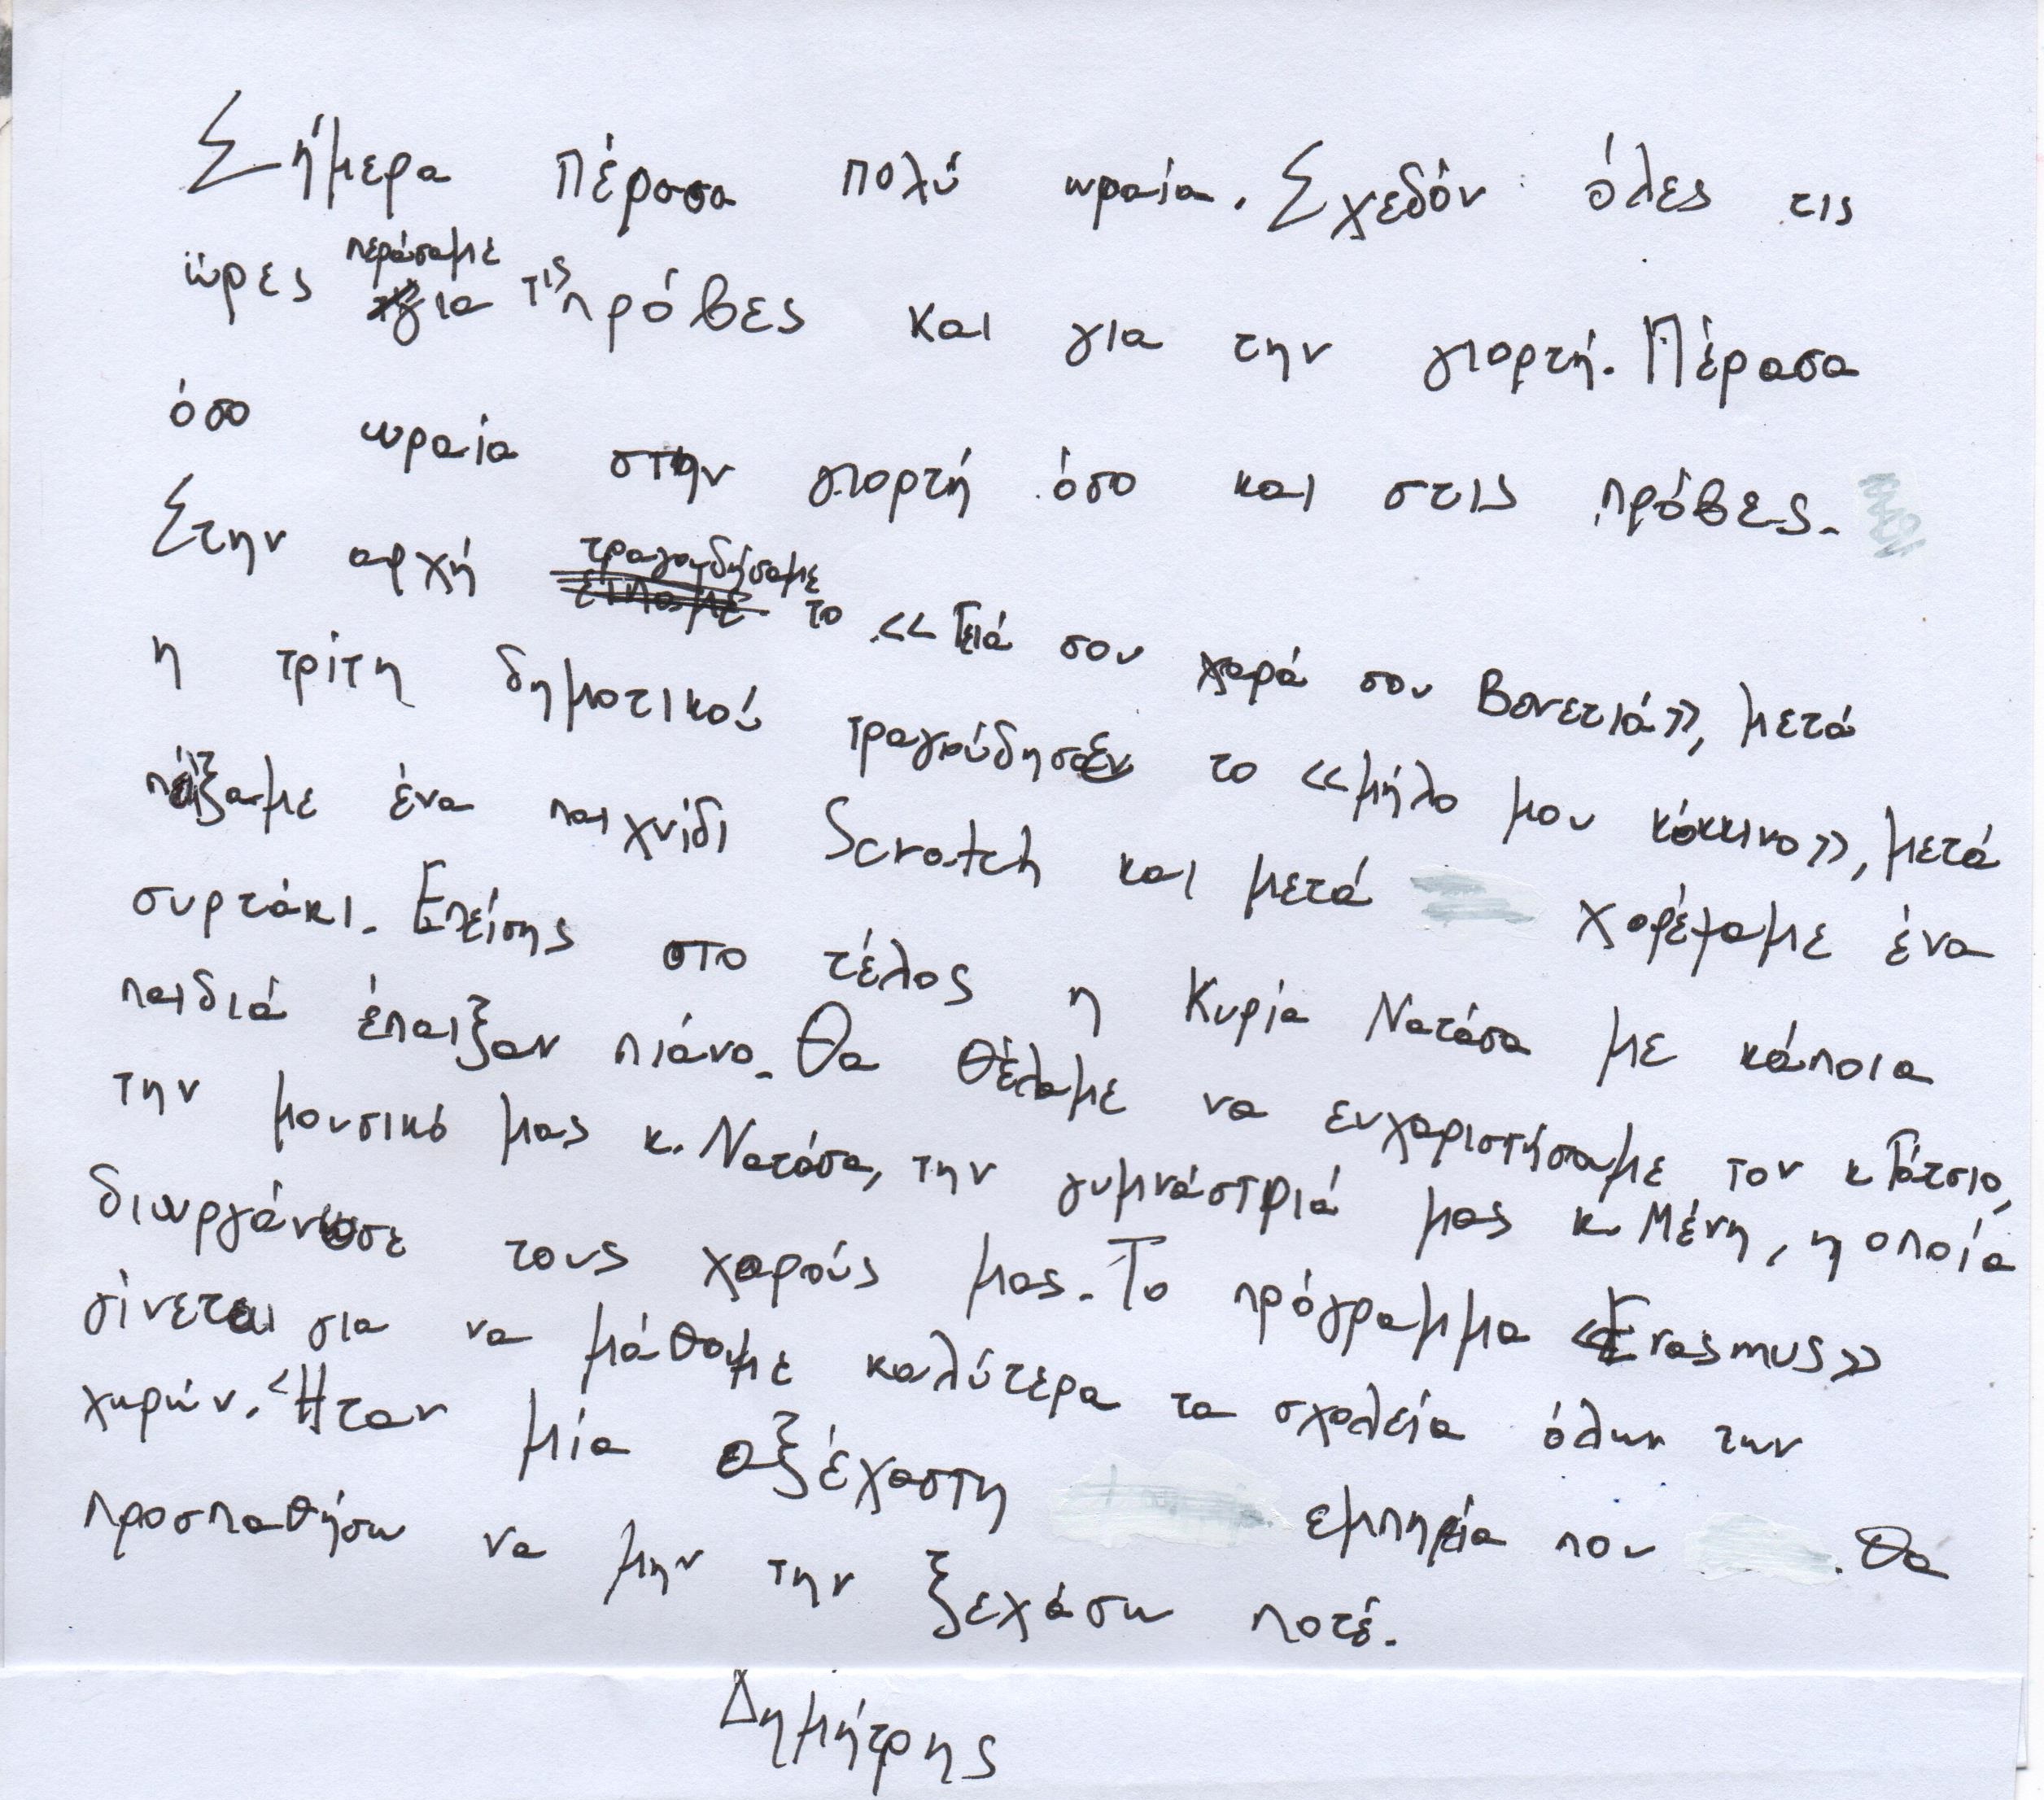 Σήμερα πέρασα πολύ ωραία. Σχεδόν όλες τις
ώρες περάσαμε για τις πρόβες και για την γιορτή. Πέρασα
όσο ωραία στην γιορτή όσο και στις πρόβες.
Στην αρχή τραγουδήσαμε το «Γειά σου χαρά σου Βενετιά», μετά
η τρίτη δημοτικού τραγούδησεν το «μήλο μου κόκκινο», μετά
παίξαμε ένα παιχνίδι Scratch και μετά χορέψαμε ένα
συρτάκι. Επίσης στο τέλος η Κυρία Νατάσα με κάποια
παιδιά έπαιξαν πιάνο. Θα θέλαμε να ευχαριστήσουμε τον κ Γάτσιο,
την μουσικό μας κ. Νατάσα, την γυμνάστριά μας κ. Μένη, η οποία
διωργάνωσε τους χορούς μας. Το πρόγραμμα «Erasmus»
γίνεται για να μάθουμε καλύτερα τα σχολεία όλων των
χωρών. Ήταν μία αξέχαστη εμπηρία που . Θα
προσπαθήσω να μην την ξεχάσω ποτέ.
Δημήτρης